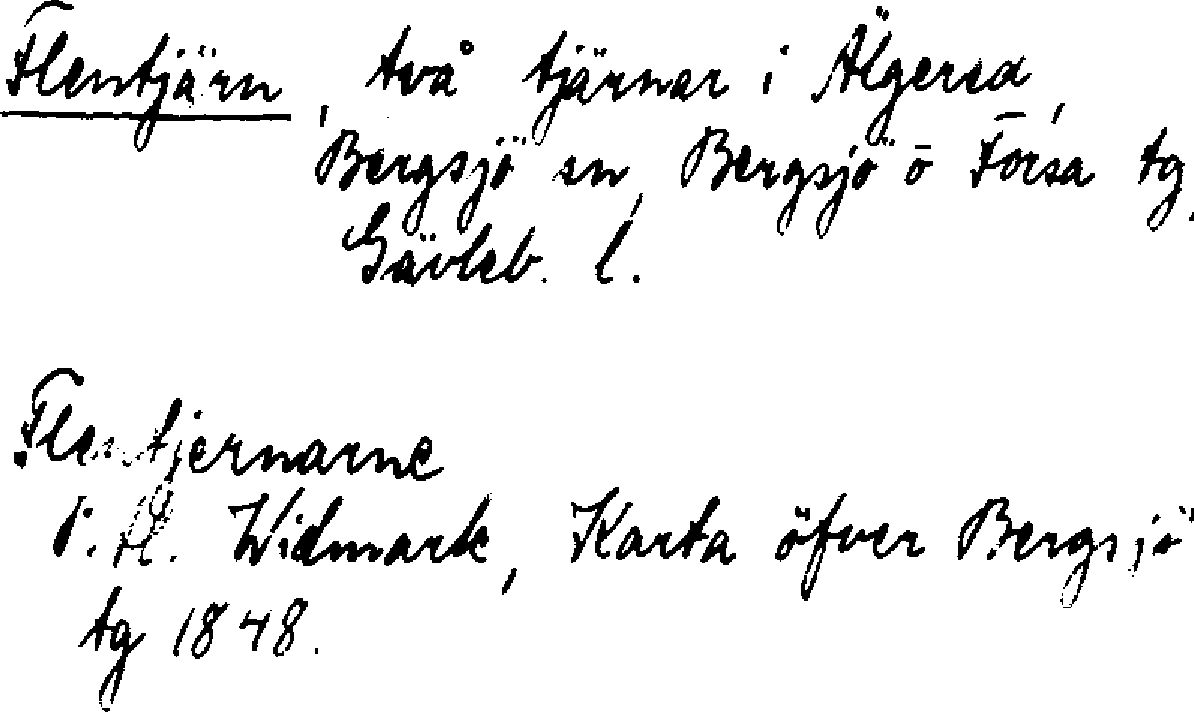 Flentjärn, två tjärnar i Älgered,
Bergsjö sn, Bergsjö o Forsa tg
Gävleb. l.
Flentjernarne
P. H. Widmark, Karta öfver Bergsjö
tg 1848.